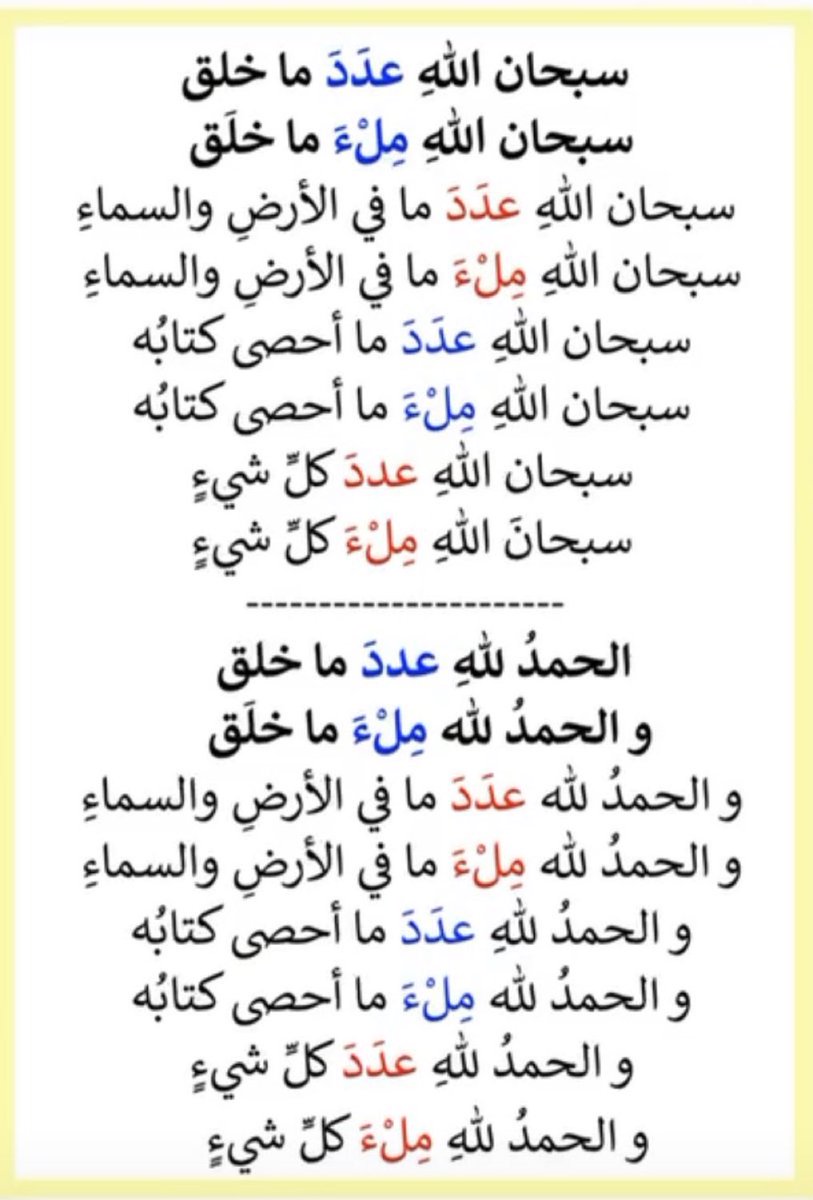 سبحان اللهِ عدَدَ ما خلق
سبحان اللهِ مِلْءَ ما خلَق
سبحان اللهِ عدَدَ ما في الأرضِ والسماءِ
سبحان اللهِ مِلْءَ ما في الأرضِ والسماءِ
سبحان اللهِ عدَدَ ما أحصى كتابُه
سبحان اللهِ مِلْءَ ما أحصى كتابُه
سبحان اللهِ عددَ كلِّ شيءٍ
سبحانَ اللهِ مِلْءَ كلِّ شيءٍ
----------------------
الحمدُ للهِ عددَ ما خلق
و الحمدُ لله مِلْءَ ما خلَق
و الحمدُ لله عدَدَ ما في الأرضِ والسماءِ
و الحمدُ لله مِلْءَ ما في الأرضِ والسماءِ
و الحمدُ للهِ عدَدَ ما أحصى كتابُه
و الحمدُ لله مِلْءَ ما أحصى كتابُه
و الحمدُ للهِ عدَدَ كلِّ شيءٍ
و الحمدُ للهِ مِلْءَ كلِّ شيءٍ